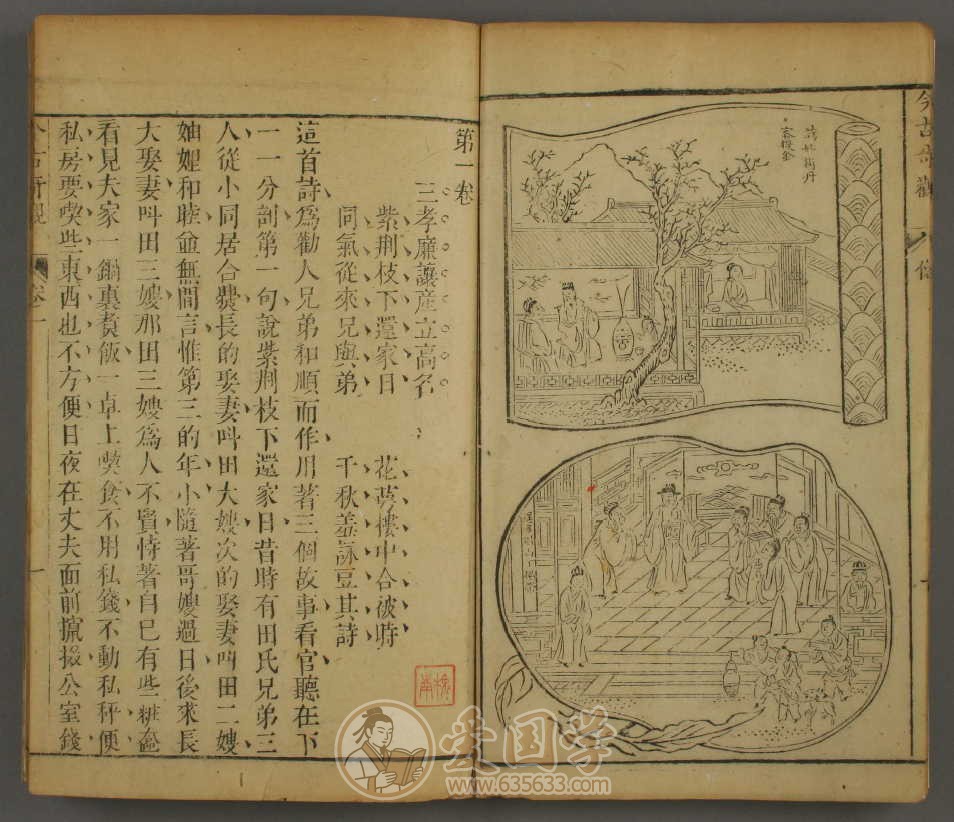 今古奇觀
像
誇妙術丹
客提金
第一卷
三孝廉讓産立高名
紫荊枝下還家日 花萼樓中合被時
同氣從來兄與弟 千秋羞詠豆萁詩
這首詩爲勸人兄弟和順而作用著三個故事看官聽在下
一一分剖第一句說紫荊枝下還家日昔時有田氏兄弟三
人從小同居合爨長的娶妻叫田大嫂次的娶妻叫田二嫂
妯娌和睦並無間言惟第三的年小隨著哥嫂過日後來長
大娶妻叫田三嫂那田三嫂爲人不賢恃著自己有些粧奩
看見夫家一鍋裏煑飯一卓上喫食不用私錢不動私秤便
私房要喫些東西也不方便日夜在丈夫面前攛掇公室錢
今古奇觀 卷一 一
爱国学
www.635633.com